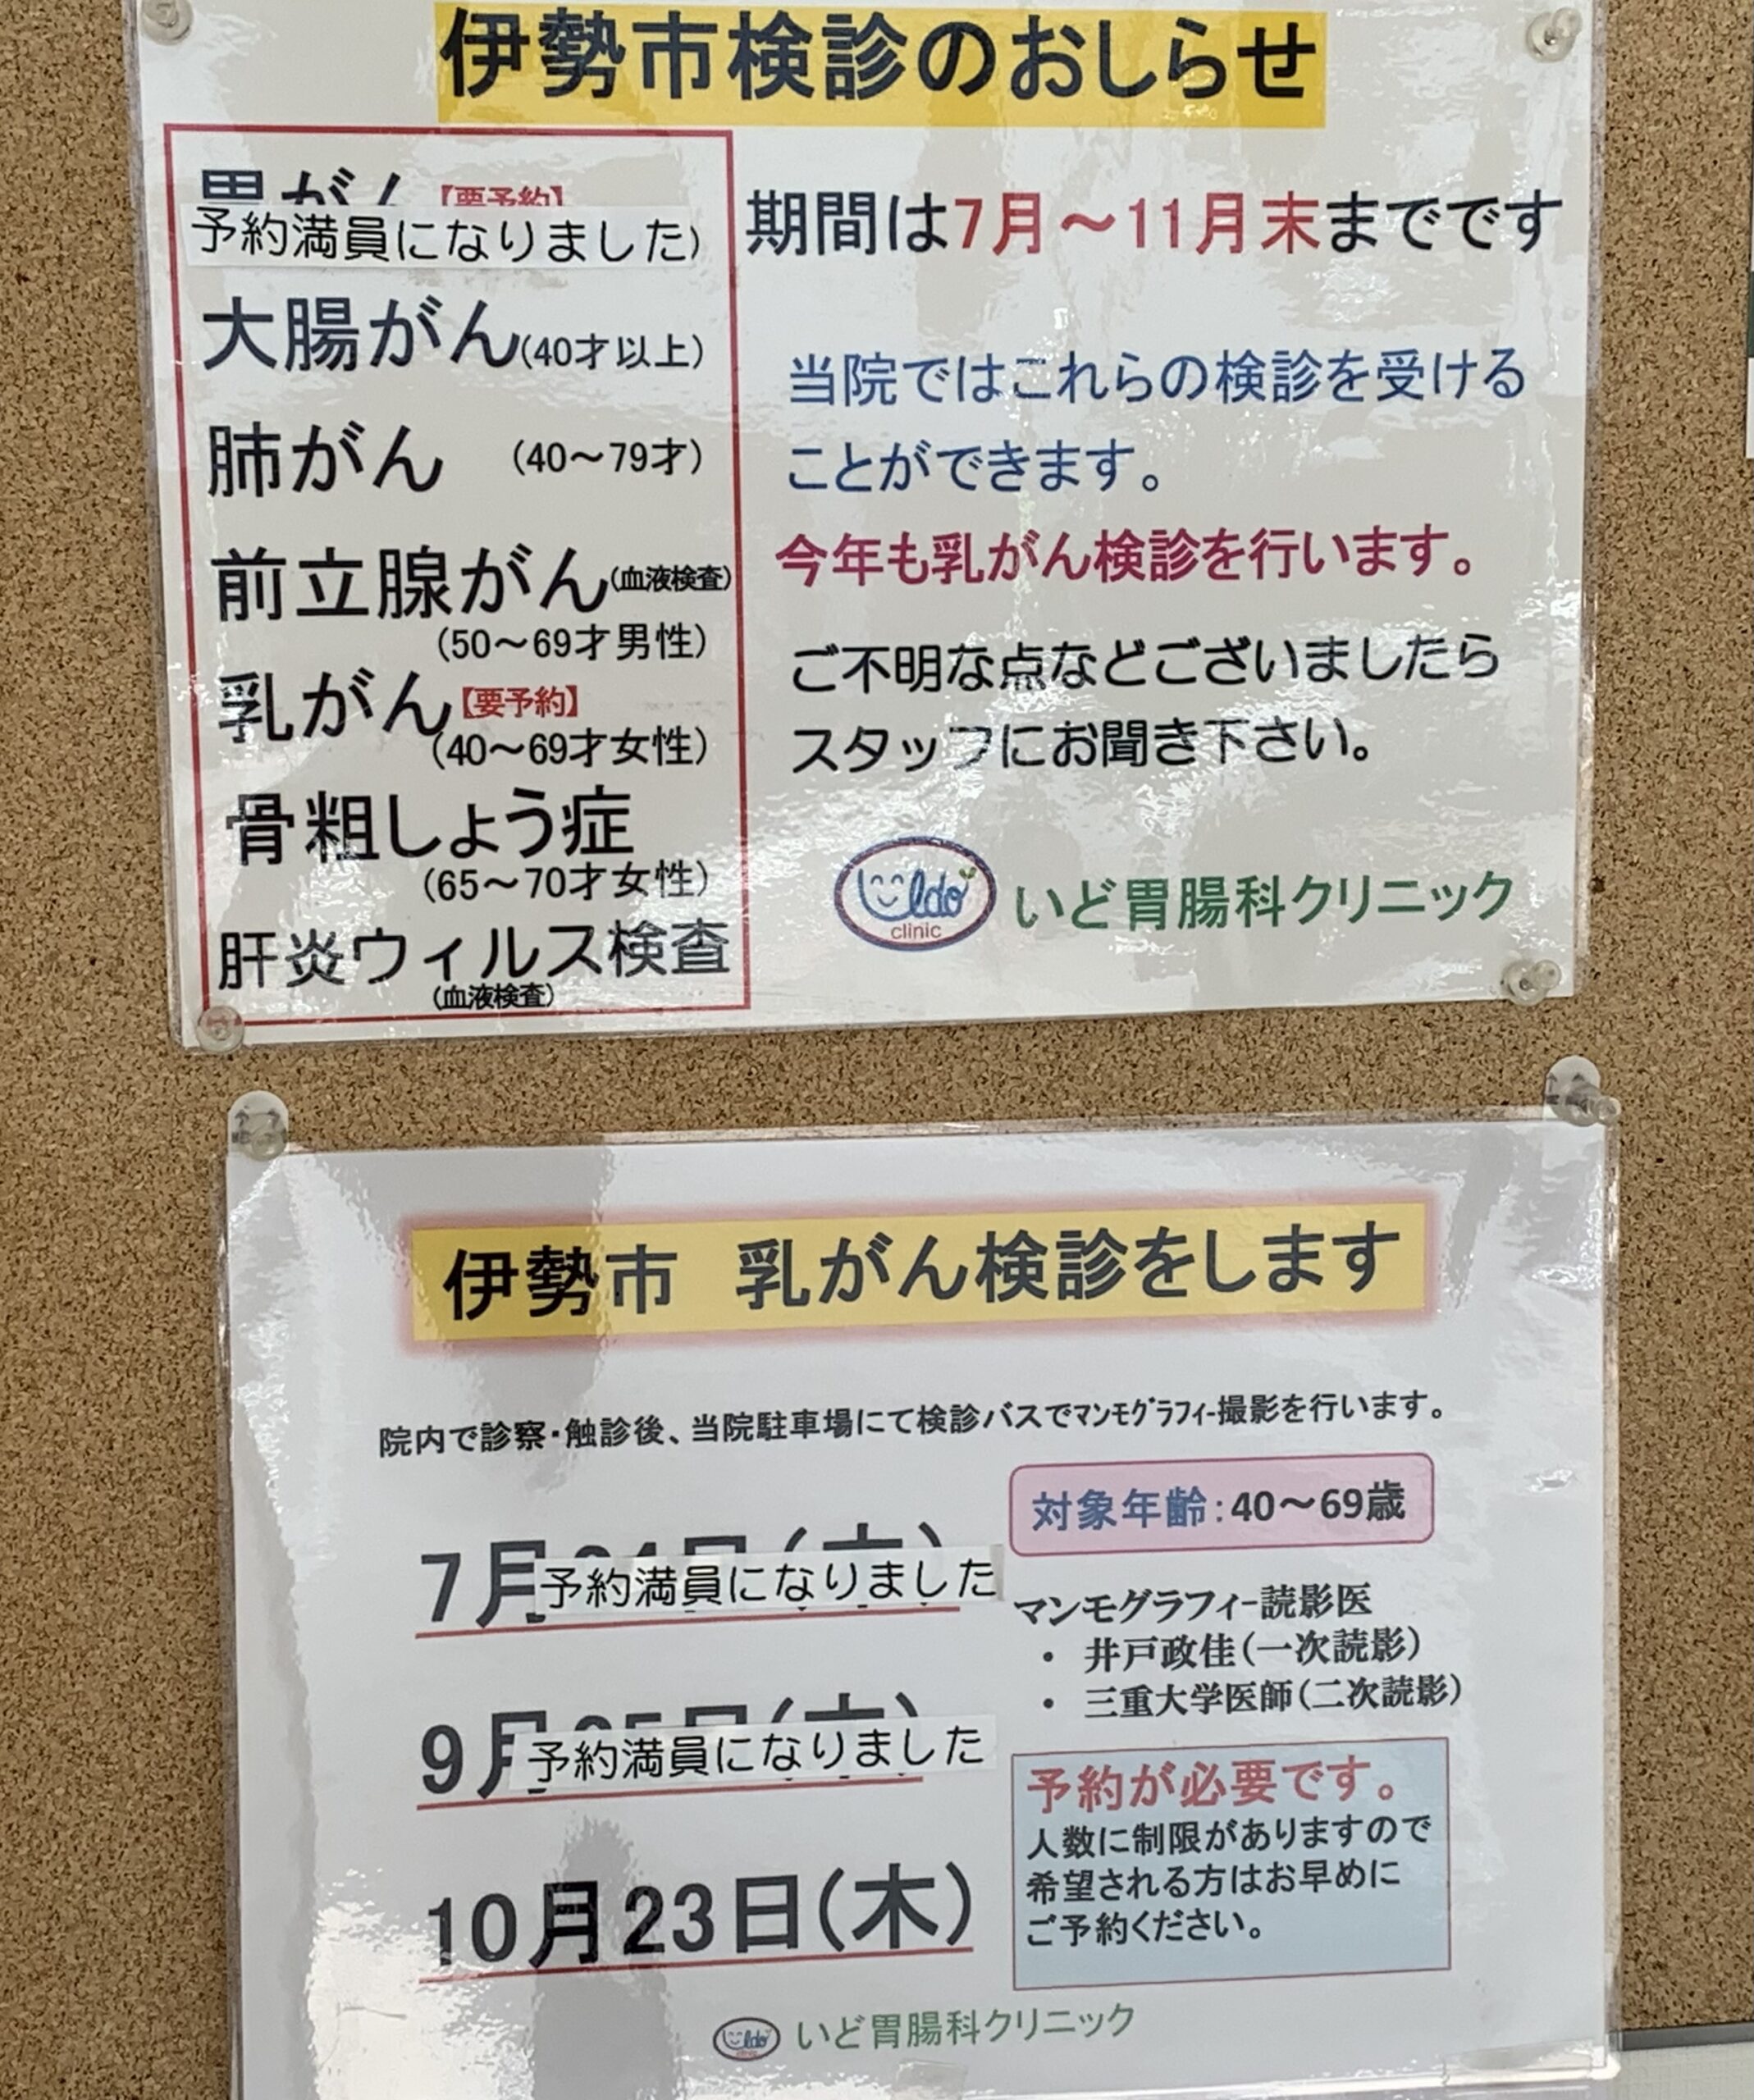 伊勢市検診のおしらせ
胃がん【要予約】
予約満員になりました)
大腸がん(40才以上)
肺がん (40～79才)
前立腺がん(血液検査)
(50～69才男性)
乳がん【要予約】
(40～69才女性)
骨粗しょう症
(65～70才女性)
肝炎ウィルス検査
(血液検査)
期間は7月～11月末までです
当院ではこれらの検診を受ける
ことができます。
今年も乳がん検診を行います。
ご不明な点などございましたら
スタッフにお聞き下さい。
Ido clinic
いど胃腸科クリニック
伊勢市 乳がん検診をします
院内で診察・触診後、当院駐車場にて検診バスでﾏﾝﾓｸﾞﾗﾌｨｰ撮影を行います。
7月
予約満員になりました
9月
予約満員になりました
10月23日(木)
対象年齢:40～69歳
マンモグラフィー読影医
・ 井戸政佳(一次読影)
・ 三重大学医師(二次読影)
予約が必要です。
人数に制限がありますので
希望される方はお早めに
ご予約ください。
Ido clinic
いど胃腸科クリニック